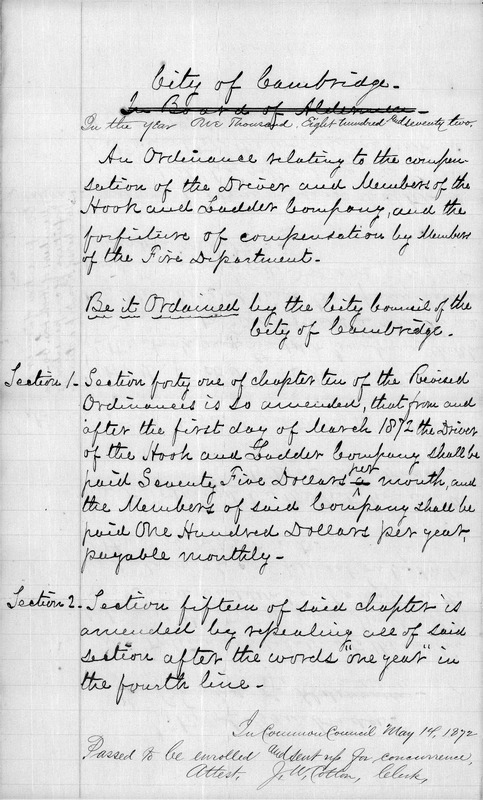 City of Cambridge.
In Board of Aldermen.
In the year One Thousand, Eight hundred and seventy two.
An Ordinance relating to the compen-
sation of the Driver and Members of the
Hook and Ladder Company, and the
forfeiture of compensation by Members
of the Fire Department.
Be it Ordained by the City Council of the
City of Cambridge.
Section 1. Section forty one of chapter ten of the Revised
Ordinances is so amended, that from and
after the first day of March 1872 the Driver
of the Hook and Ladder Company shall be
paid Seventy Five Dollars per month, and
the Members of said Company shall be
paid One Hundred Dollars per year,
payable monthly.
Section 2. Section fifteen of said chapter is
amended by repealing all of said
section after the words "one year" in
the fourth line.
In Common Council May 14, 1872
Passed to be enrolled and sent up for concurrence,
Attest, J. W. Cotton, Clerk,